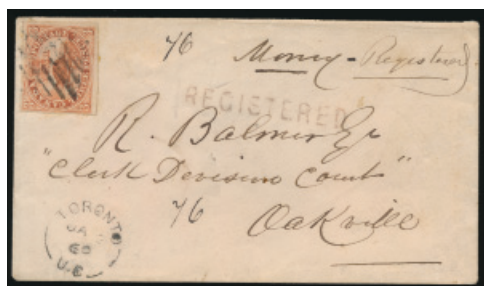 76 Money - Registered
REGISTERED
R. Balmer Esqr
"Clerk Division Court"
76
Oakville
TORONTO
JA
60
U.C